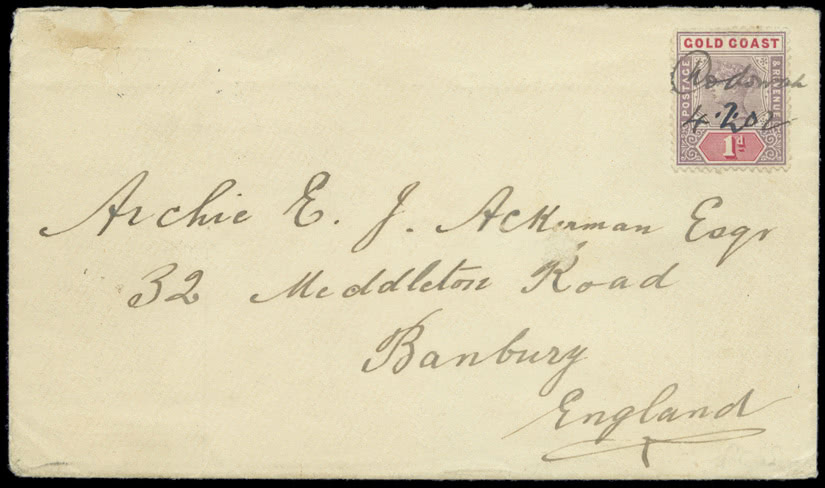 GOLD COAST
POSTAGE
& REVENUE
1d
Archie E. J. Ackerman Esqr
32 Meddleton Road
Banbury
England